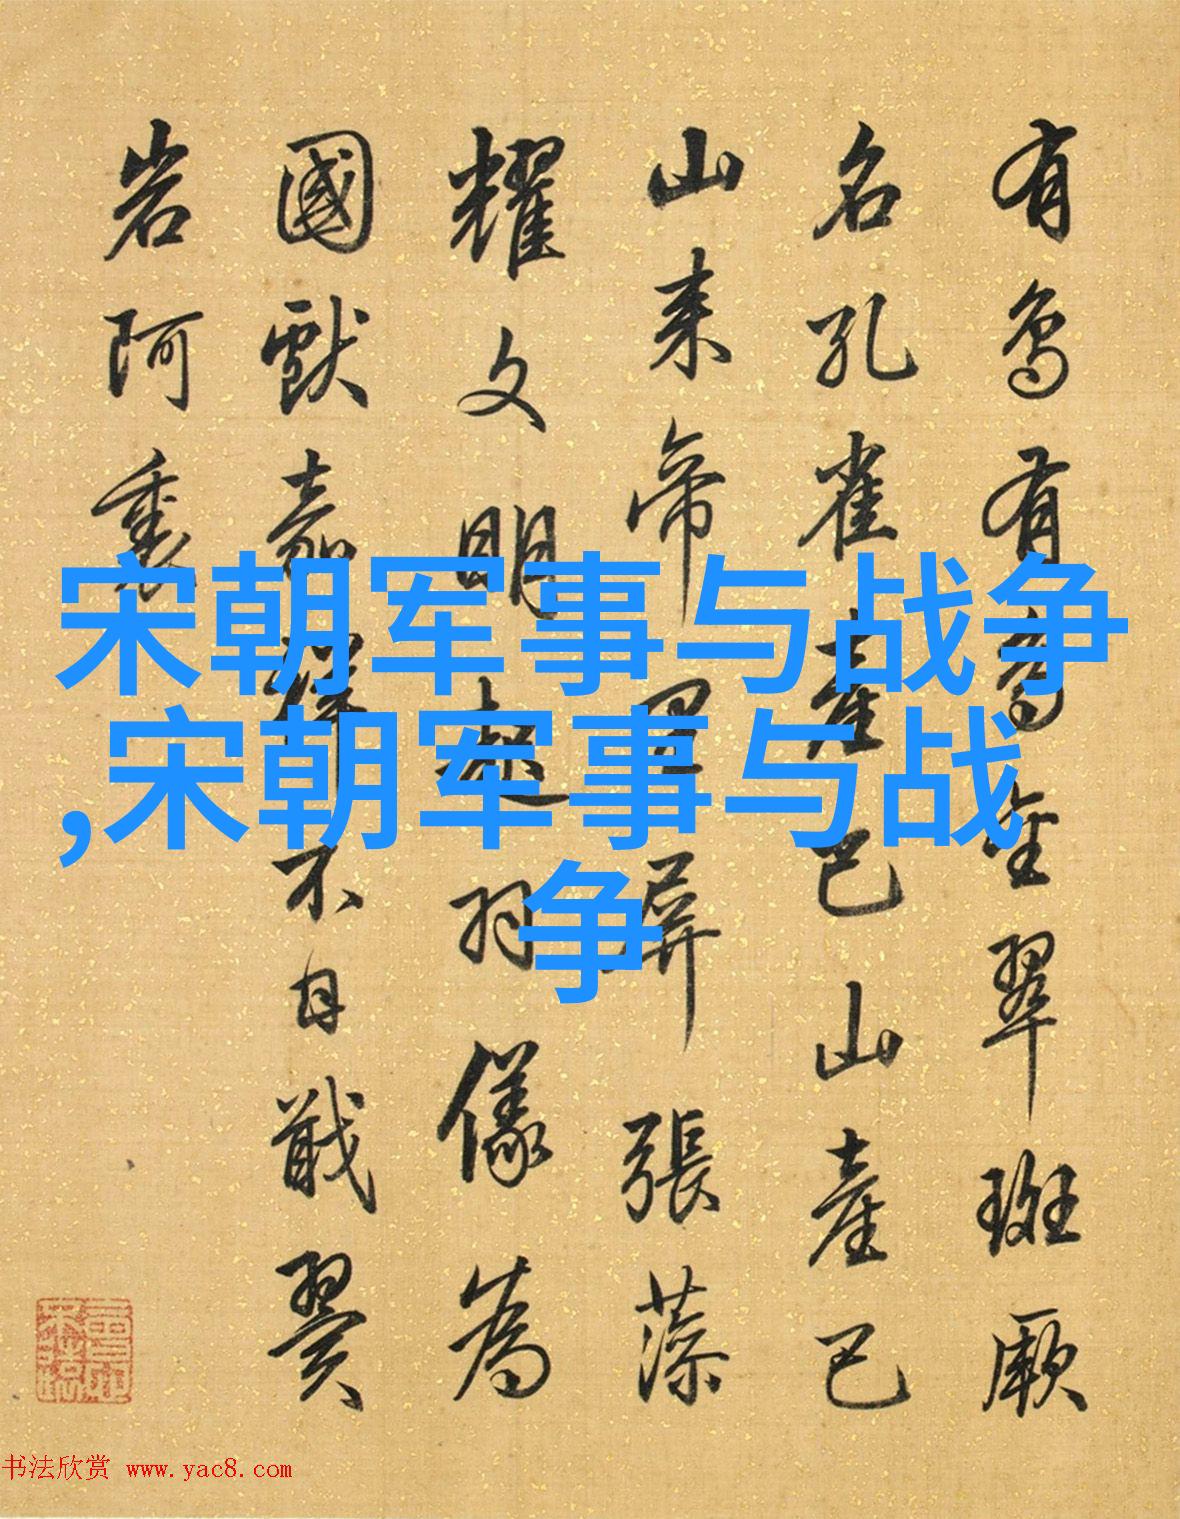 宋朝军事与战争
,宋朝军事与战
争
有鳥有鳥金翠斑厥
名孔雀產巴山產巴
山来帝里屏張藻
耀文明羽儀為
國獻嘉不自戢翼
岩阿裏
书法欣赏 www.yac8.com